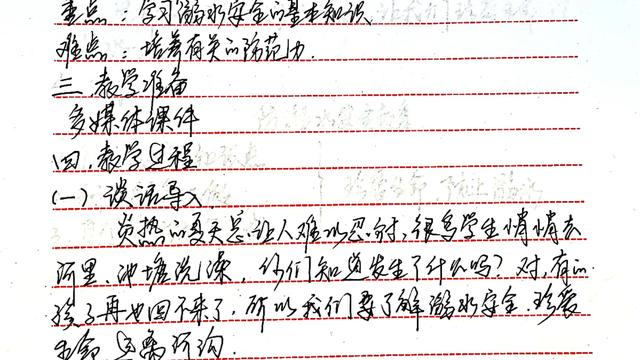 重点：学习溺水安全的基本知识
难点：培养有关的防范力.
三 教学准备
多媒体课件
四.教学过程
(一) 谈话导入
炎热的夏天总让人难以忍耐,很多学生悄悄去
河里、冲塘洗澡，你们知道发生了什么吗？对,有的
孩子再也回不来了，所以我们要了解溺水安全.珍爱
生命 远离河沟.